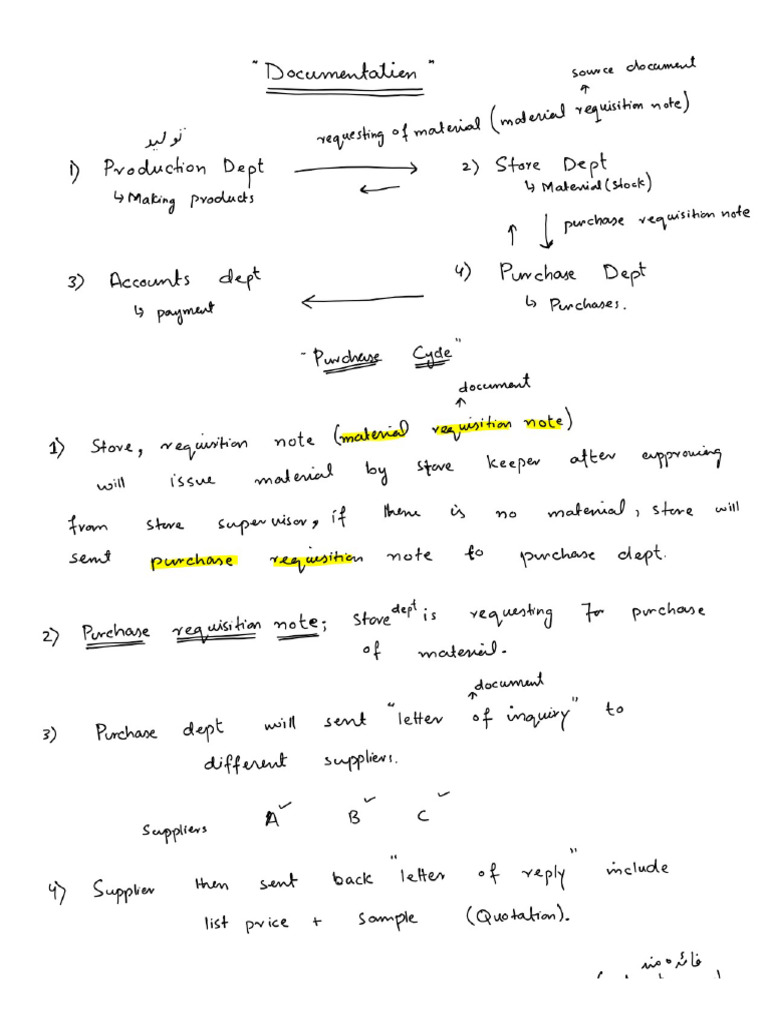 "Documentation"
source document
requesting of material (material requisition note)
تولید
1) Production Dept
2) Store Dept
↳ Making products
↳ Material (stock)
purchase requisition note
3) Accounts dept
4) Purchase Dept
↳ payment
↳ Purchases.
"Purchase Cycle"
document
1) Store, requisition note (material requisition note)
will issue material by store keeper after approving
from store supervisor, if there is no material, store will
sent purchase requisition note to purchase dept.
2) Purchase requisition note; Store dept is requesting for purchase
of material.
document
3) Purchase dept will sent "letter of inquiry" to
different suppliers.
Suppliers A ✓ B ✓ C ✓
4) Supplier then sent back "letter of reply" include
list price + sample (Quotation).
فائدہ مند